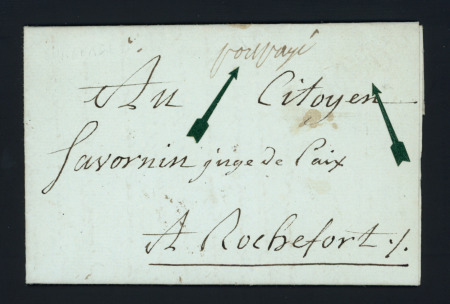 port payé
Au Citoyen
Savornin juge de Paix
A Rochefort ./.